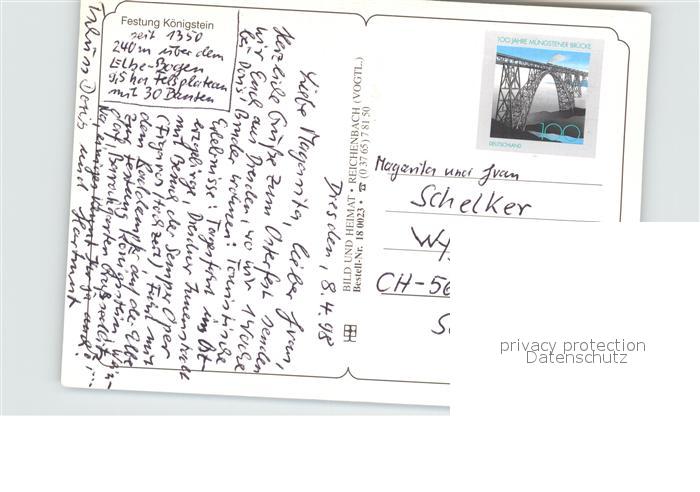 Festung Königstein
seit 1350
240m über dem
Elbe-Bogen
9,5 ha Felsplateau
mit 30 Bauten
Dresden, 8.4.98
Liebe Magarita, lieber Ivan,
Herzliche Grüße zum Osterfest senden
wir Euch aus Dresden, wo wir 1 Woche
bei Doris Bruder wohnen. Touristische
Erlebnisse: Tagesfahrt ins Ost-
erzgebirge, Dresdner Innenstadt
mit Besuch der Semper Oper
(Figaros Hochzeit) Fahrt mit
dem Raddampfer auf der Elbe
zur Festung Königstein,
Barockgarten Großsedlitz
Doris und Hartmut
BILD UND HEIMAT • REICHENBACH (VOGTL.)
Bestell-Nr. 18 0023 • ☎ (0 37 65) 7 81 50
100 JAHRE MÜNGSTENER BRÜCKE
100
DEUTSCHLAND
Magarita und Ivan
Schelker
Wy
CH-56
S
privacy protection
Datenschutz